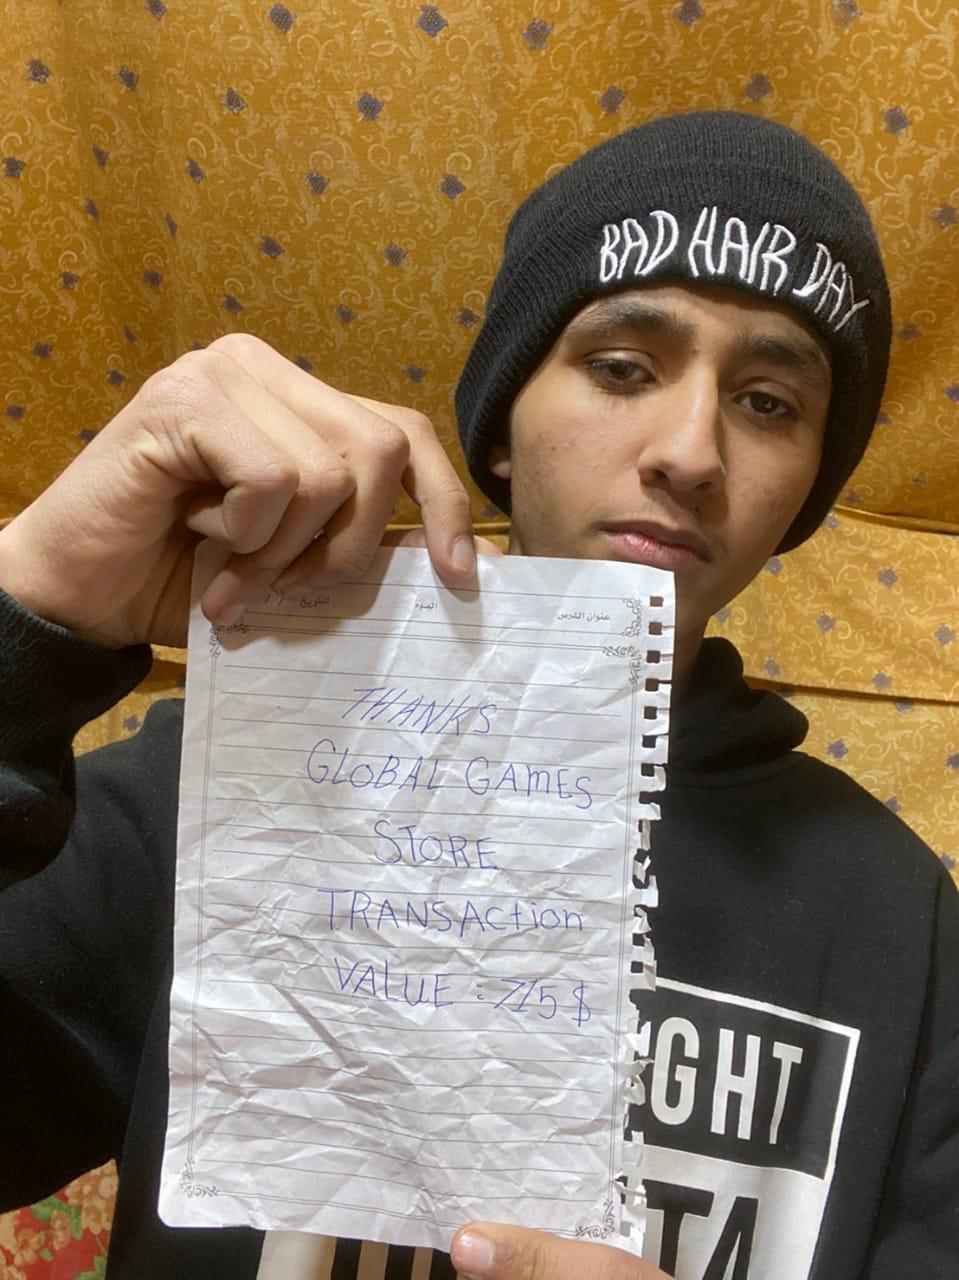 BAD HAIR DAY
عنوان الدرس اليوم التاريخ / /
THANKS
GLOBAL GAMES
STORE
TRANSACtion
VALUE : 715 $
GHT
TA